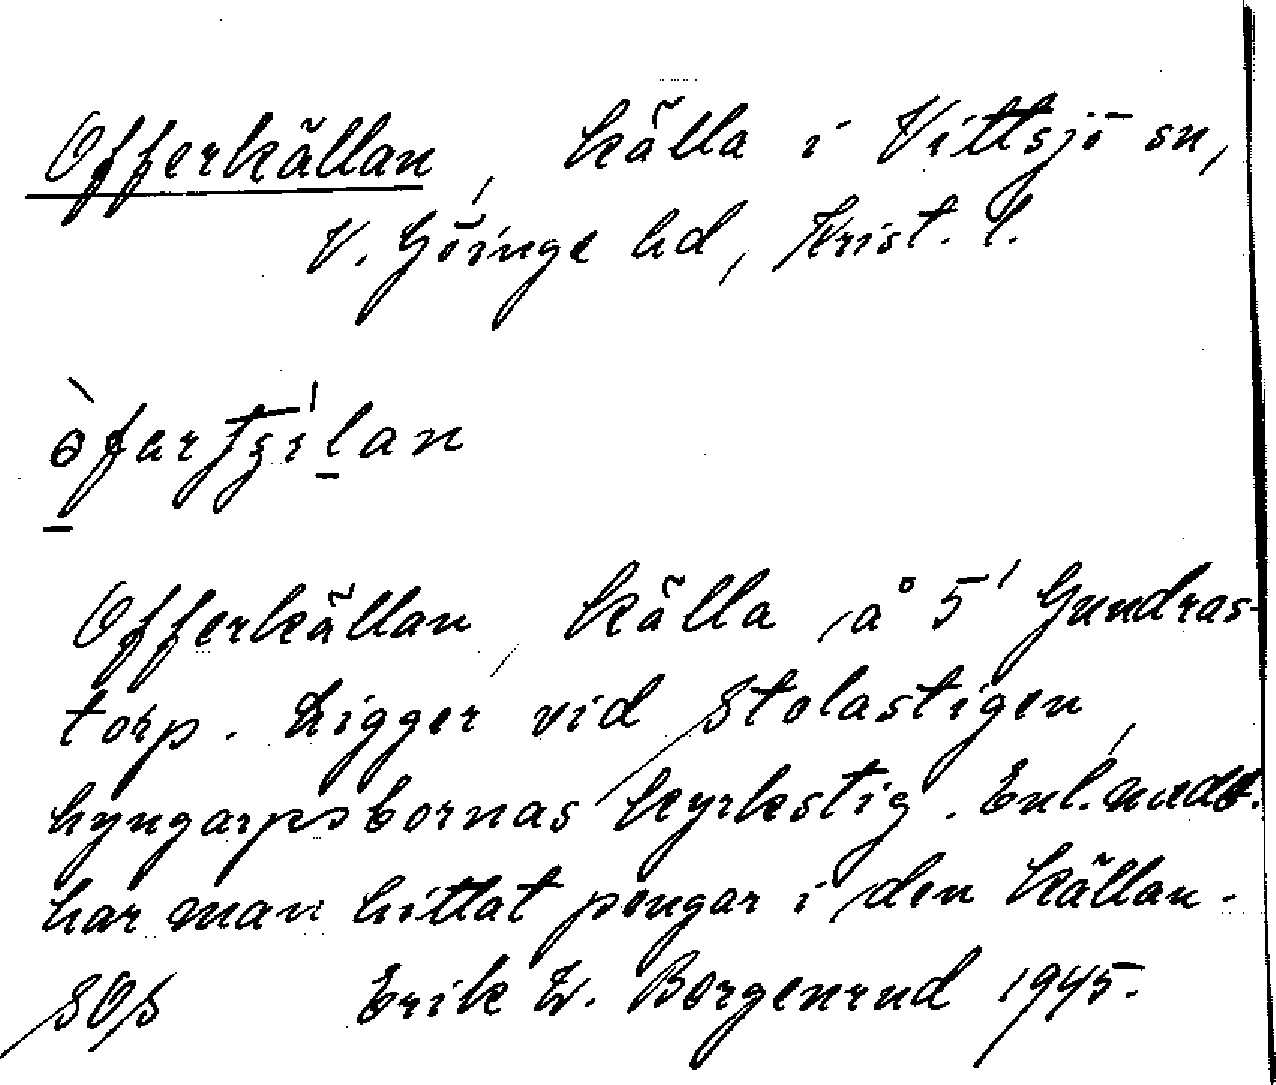 Offerkällan, källa i Vittsjö sn,
V. Göinge hd, Krist. l.
Offerkällan, källa å 5¹ Gundras-
torp. Ligger vid Stolastigen,
hyngarpsbornas kyrkstig. Enl. medd.
har man hittat pengar i den källan.
SOS Erik W. Borgenrud 1945.